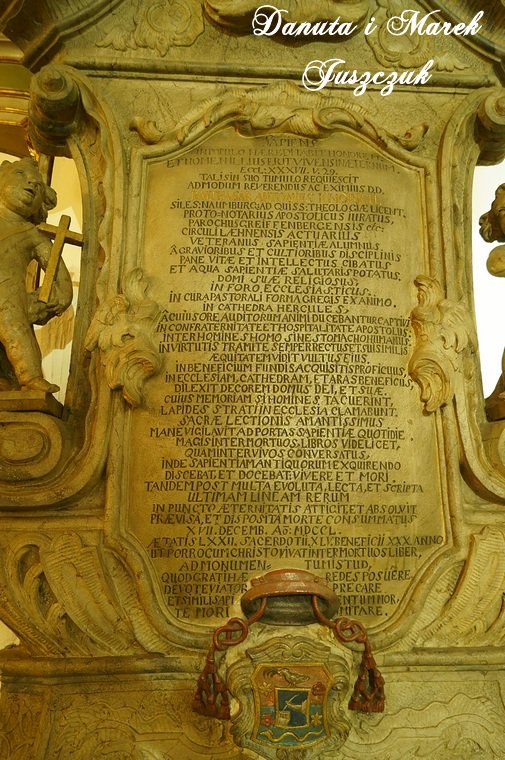 Danuta i Marek
Juszczuk
SAPIENS
IN POPULO HÆREDITABIT HONOREM
ET NOMEN ILLIUS ERIT VIVENS IN ÆTERNUM.
ECCL: XXXVII. V. 29.
TALI IN SUO TUMULO REQUIESCIT
ADMODUM REVERENDUS AC EXIMIUS D.D.
SILES: NAUMBURG: AD QUISS: THEOLOGIÆ LICENT,
PROTO=NOTARIUS APOSTOLICUS IURATUS,
PAROCHUS GREIFFENBERGENSIS etc:
CIRCULI LÆHNENSIS ACTUARIUS
VETERANUS SAPIENTIÆ ALUMNUS
GRAVIORIBUS ET CULTIORIBUS DISCIPLINIS
PANE VITÆ ET INTELLECTUS CIBATUS
ET AQUA SAPIENTIÆ SALUTARIS POTATUS,
DOMI SUÆ RELIGIOSUS;
IN FORO ECCLESIASTICUS.
IN CURA PASTORALI FORMA GREGIS EX ANIMO,
IN CATHEDRA HERCULES,
ÂCUIUS ORE AUDITORUM ANIMI DUCEBANTUR CAPTIVI
IN CONFRATERNITATE ET HOSPITALITATE APOSTOLUS
INTER HOMINES HOMO SINE STOMACHO HUMANUS
IN VIRTUTIS TRAMITE SEMPER RECTUS ET SUI SIMILIS
ÆQUITATEM VIDIT VULTUS EIUS,
IN BENEFICIUM FUNDIS ACQUISITIS PROFICUUS,
IN ECCLESIAM, CATHEDRAM, ET ARAS BENEFICUS
DILEXIT DECOREM DOMUS DEI, ET SUÆ.
CUIUS MEMORIAM SI HOMINES TACUERINT,
LAPIDES STRATI IN ECCLESIA CLAMABUNT.
SACRÆ LECTIONIS AMANTISSIMUS
MANE VIGILAVIT AD PORTAS SAPIENTIÆ QUOTIDIE
MAGIS INTER MORTUOS, LIBROS VIDELICET,
QUAM INTER VIVOS CONVERSATUS,
INDE SAPIENTIAM ANTIQUORUM EXQUIRENDO
DISCEBAT, ET DOCEBAT: VIVERE ET MORI.
TANDEM POST MULTA EVOLUTA, LECTA, ET SCRIPTA
ULTIMAM LINEAM RERUM
IN PUNCTO ÆTERNITATIS ATTIGIT, ET ABSOLVIT
PRÆVISA, ET DISPOSITA MORTE CONSUMMATUS
XVII. DECEMB. Aō: MDCCL.
ÆTATIS LXXII. SACERDOTII XLV. BENEFICII XXX. ANNO
UT PORRO CUM CHRISTO VIVAT INTER MORTUOS LIBER,
AD MONUMEN TUM ISTUD,
QUOD GRATI HÆ REDES POSUERE,
DEVOTE VIATOR PRECARE
ET SIMILI SAPI
TE MORI MITARE.